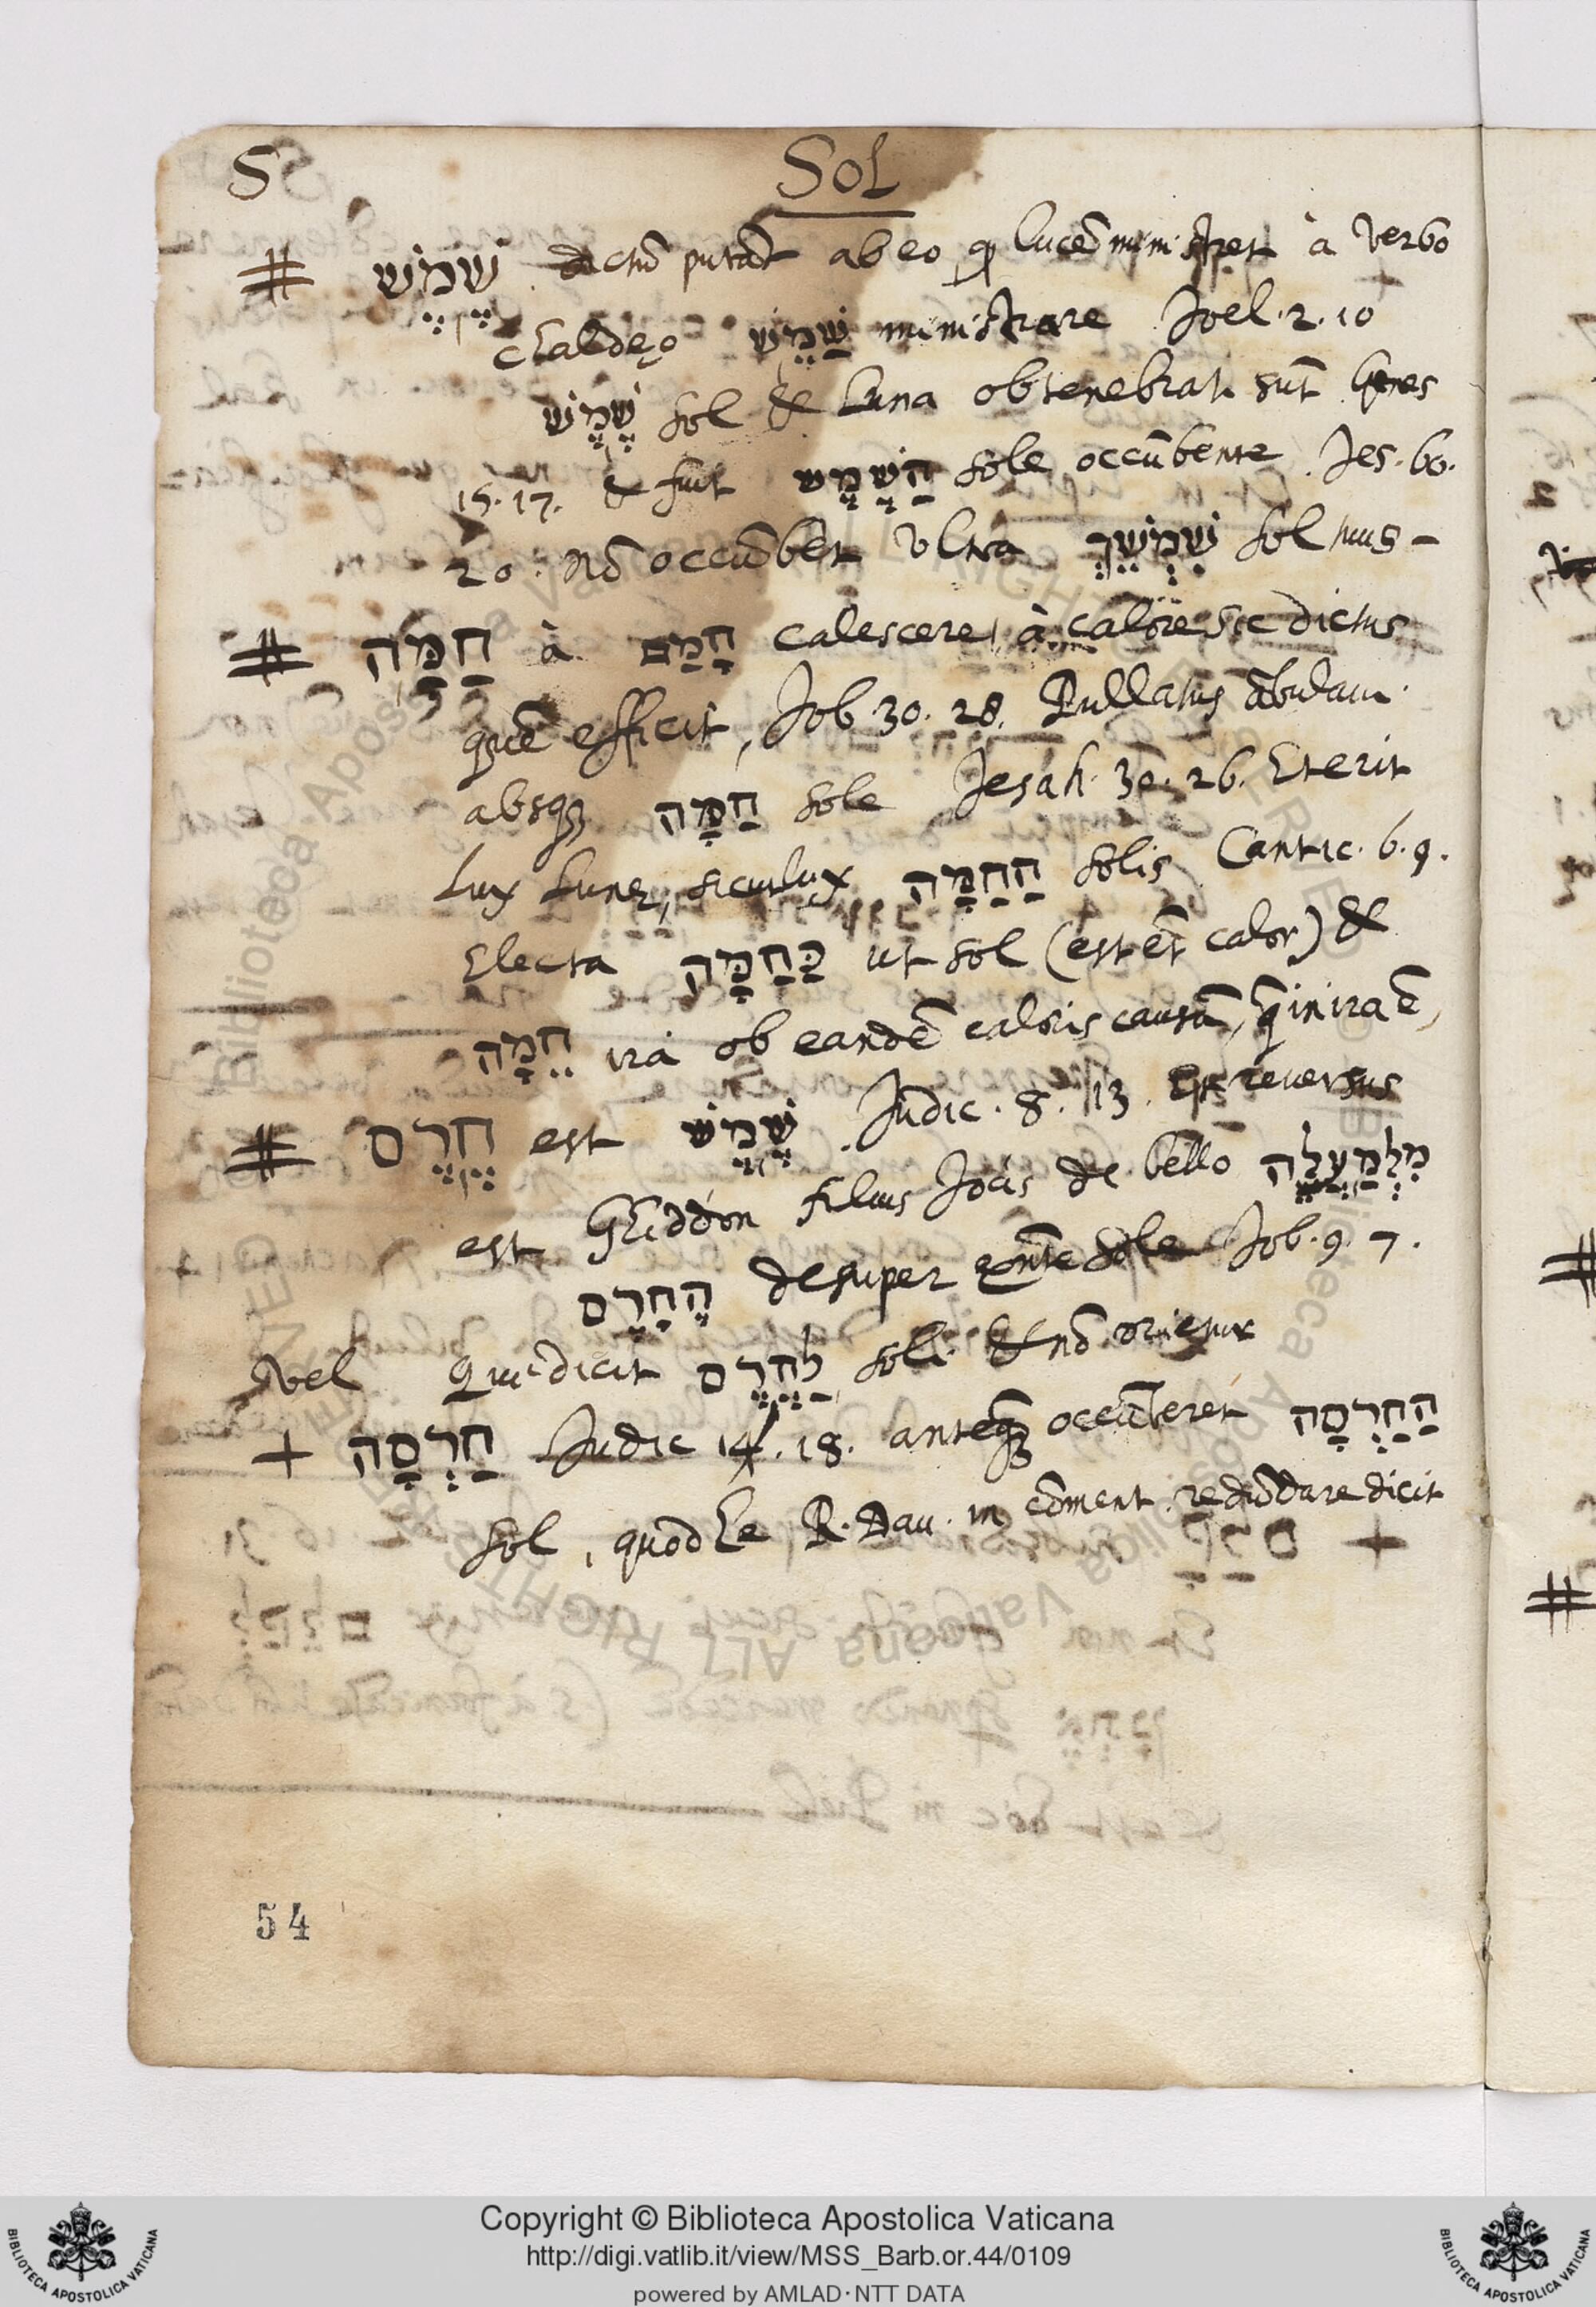 S Sol
שֶׁמֶשׁ dictũ putãt ab eo ꝙ lucẽ ministret à verbo
chaldęo שַׁמֵּשׁ ministrare Joel. 2. 10
שֶׁמֶשׁ sol & Luna obtenebrati sũt Genes
15. 17. & fuit הַשֶּׁמֶשׁ sole occũbente. Jes. 60.
20. Nõ occũbet ultra שִׁמְשֵׁךְ sol tuus -
חַמָּה à חָמַם calescere, à calore sic dictus
quẽ efficit, Job 30. 28. Pullatus ãbulaui
absqꝫ חַמָּה sole Jesah. 30. 26. Et erit
Lux Lunę, sicut lux הַחַמָּה solis Cantic. 6. 9.
Electa כַּחַמָּה ut sol (est et̃ calor) &
חֵמָה ira ob eandẽ caloris causã, q̃ in ira ẽ,
חֶרֶס est שֶׁמֶשׁ. Judic. 8. 13. Et reuersus
est Ghiddon filius Joas de bello מִלְמַעֲלֵה
הֶחָרֶס desuper sole Job. 9. 7.
vel Qui dicit לַחֶרֶס soli & nõ orietur
+ חַרְסָה Judic 14. 18. anteqꝫ occũberet הַחַרְסָה
Sol, quod he R. Dau. in cõment. redũdare dicit
54
Copyright © Biblioteca Apostolica Vaticana
http://digi.vatlib.it/view/MSS_Barb.or.44/0109
powered by AMLAD·NTT DATA
BIBLIOTECA APOSTOLICA VATICANA
BIBLIOTECA APOSTOLICA VATICANA